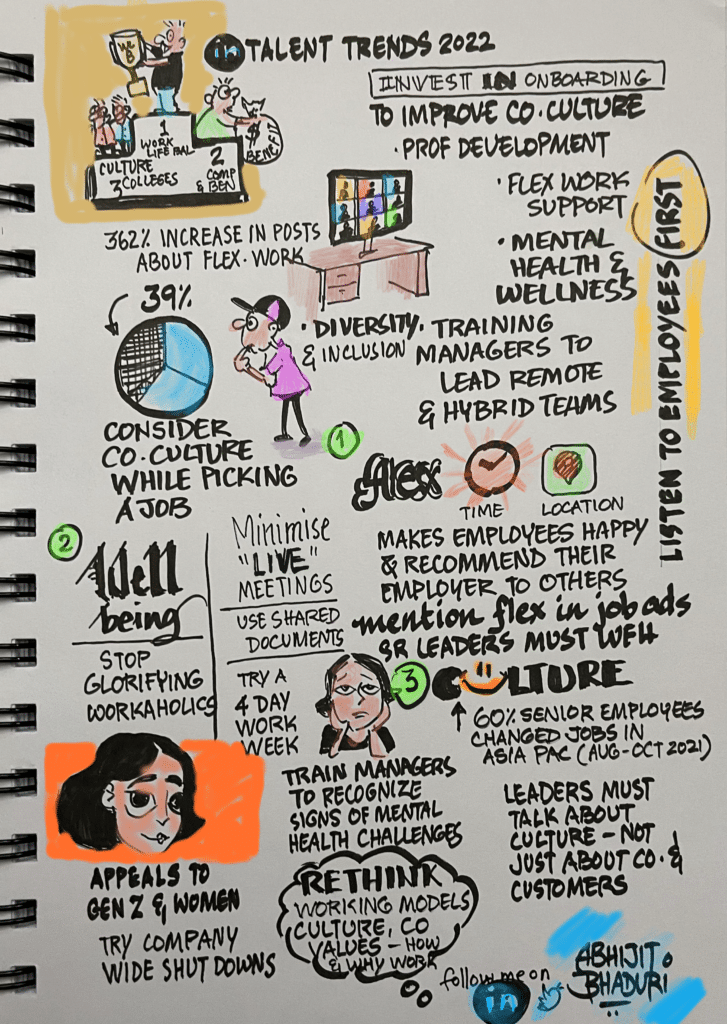 WLB
in TALENT TRENDS 2022
1
WORK
LIFE BAL
CULTURE
3 COLLEGES
2
COMP
& BEN
$
BENEFIT
INVEST IN ONBOARDING
TO IMPROVE CO. CULTURE
· PROF DEVELOPMENT
· FLEX WORK
SUPPORT
· MENTAL
HEALTH &
WELLNESS
LISTEN TO EMPLOYEES FIRST
362% INCREASE IN POSTS
ABOUT FLEX-WORK
39%
CONSIDER
CO. CULTURE
WHILE PICKING
A JOB
· DIVERSITY
& INCLUSION
· TRAINING
MANAGERS TO
LEAD REMOTE
& HYBRID TEAMS
1
flex
TIME
LOCATION
MAKES EMPLOYEES HAPPY
& RECOMMEND THEIR
EMPLOYER TO OTHERS
mention flex in job ads
SR LEADERS MUST WFH
2
Well
being
STOP
GLORIFYING
WORKAHOLICS
Minimise
"LIVE"
MEETINGS
USE SHARED
DOCUMENTS
TRY A
4 DAY
WORK
WEEK
3
CULTURE
60% SENIOR EMPLOYEES
CHANGED JOBS IN
ASIA PAC (AUG-OCT 2021)
TRAIN MANAGERS
TO RECOGNIZE
SIGNS OF MENTAL
HEALTH CHALLENGES
LEADERS MUST
TALK ABOUT
CULTURE - NOT
JUST ABOUT CO. &
CUSTOMERS
APPEALS TO
GEN Z & WOMEN
TRY COMPANY
WIDE SHUT DOWNS
RETHINK
WORKING MODELS
CULTURE, CO
VALUES - HOW
& WHY WORK
follow me on
in
ABHIJIT
BHADURI